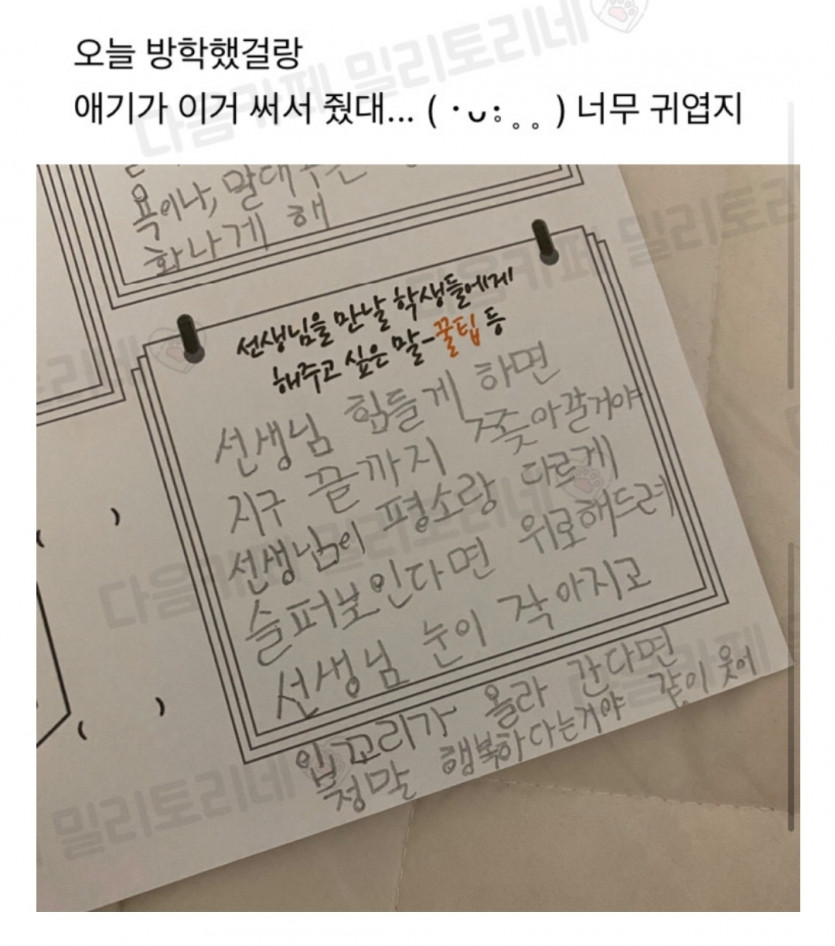 오늘 방학했걸랑
애기가 이거 써서 줬대... ( ･ᴗ:̥̥ ) 너무 귀엽지
욕이나, 말대
화나게 해
선생님을 만날 학생들에게
해주고 싶은 말-꿀팁 등
선생님 힘들게 하면
지구 끝까지 쫒아갈거야
선생님이 평소랑 다르게
슬퍼보인다면 위로해드려
선생님 눈이 작아지고
입꼬리가 올라 간다면
정말 행복하다는거야 같이 웃어
다음카페 밀리토리네